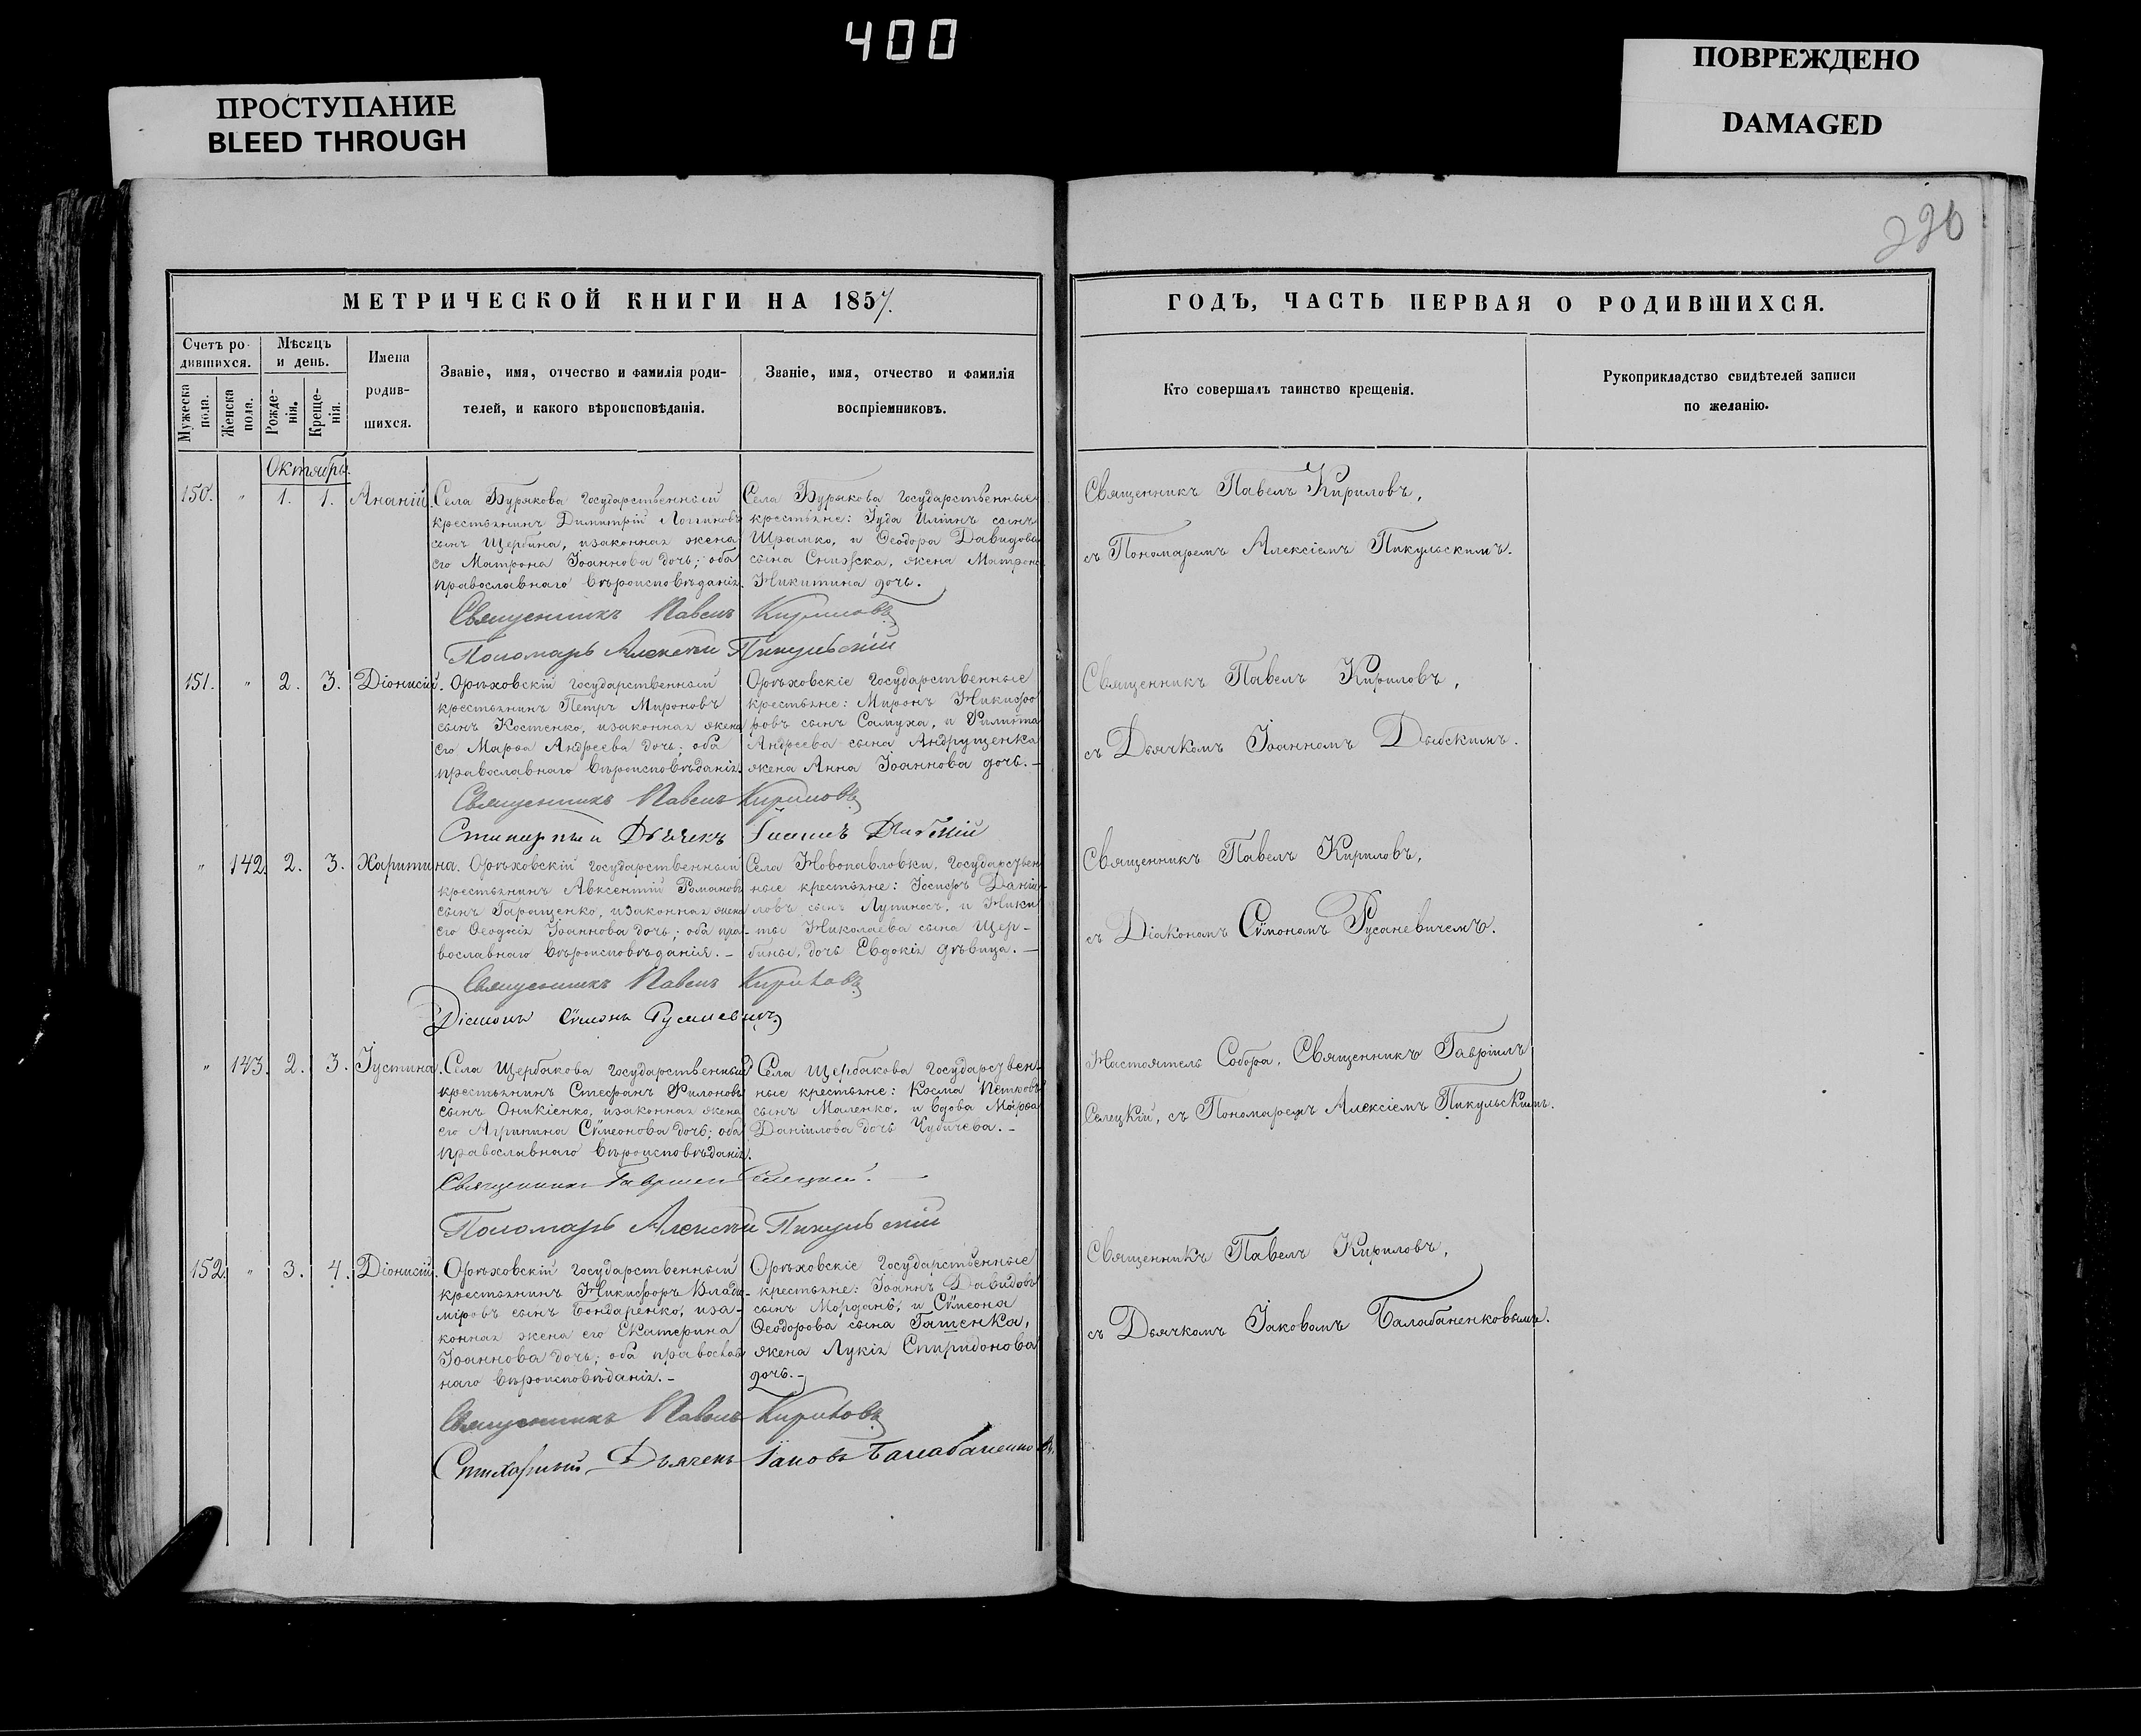 400
ПРОСТУПАНИЕ
BLEED THROUGH
ПОВРЕЖДЕНО
DAMAGED
МЕТРИЧЕСКОЙ КНИГИ НА 1857.
Счетъ ро-
дившихся.
Мужеска
пола.
Женска
пола.
Мѣсяцъ
и день.
Рожде-
нія.
Креще-
нія.
Имена
родив-
шихся.
Званіе, имя, отчество и фамилія роди-
телей, и какого вѣроисповѣданія.
Званіе, имя, отчество и фамилія
воспріемниковъ.
Октябрь.
150. " 1. 1. Ананій.
Села Бурякова государственный
крестьянинъ Димитрій Логгиновъ
сынъ Щербина, изаконная жена
его Матрона Іоаннова дочь; оба
православнаго вѣроисповѣданія.
Села Бурякова государственные
крестьяне: Іуда Иліинъ сынъ
Шрамко, и Ѳеодора Давидова
сына жена Матрона
Никитина дочь.
Священникъ Павелъ Кириловъ
Пономарь Алексѣй Пикульскій
151. " 2. 3. Діонисій.
Орѣховскій государственный
крестьянинъ Петръ Мироновъ
сынъ Костенко, изаконная жена
его Марѳа Андреева дочь; оба
православнаго вѣроисповѣданія.
Орѣховскіе государственные
крестьяне: Миронъ Никифо
ровъ сынъ Самуха, и Филиппа
Андреева сына Андрущенка
жена Анна Іоаннова дочь. —
Священникъ Павелъ Кириловъ
Стихарный Дьячекъ Іоаннъ
" 142. 2. 3. Харитина.
Орѣховскій государственный
крестьянинъ Авксентій Романовъ
сынъ Таращенко, изаконная жена
его Ѳеодосія Іоаннова дочь; оба пра-
вославнаго вѣроисповѣданія. —
Села Новопавловки, государствен
ные крестьяне: Іосифъ Даніи-
ловъ сынъ Лупиносъ, и Ники
ты Николаева сына Щер-
бины, дочь Евдокія дѣвица. —
Священникъ Павелъ Кириловъ
Діаконъ Сѵмонъ Русаневичъ
" 143. 2. 3. Іустина.
Села Щербакова государственный
крестьянинъ Стефанъ Филоновъ
сынъ Оникіенко, изаконная жена
его Агрипина Сѵмеонова дочь; оба
православнаго вѣроисповѣданія.
Села Щербакова государствен-
ные крестьяне: Косма Петровъ
сынъ Маленко, и вдова Марѳа
Даніилова дочь —
Священникъ Гавріилъ Селецкій. —
Пономарь Алексѣй Пикульскій
152. " 3. 4. Діонисій.
Орѣховскій государственный
крестьянинъ Никифоръ Влади-
міровъ сынъ Бондаренко, иза-
конная жена его Екатерина
Іоаннова дочь; оба православ
наго вѣроисповѣданія. —
Орѣховскіе государственные
крестьяне: Іоаннъ Давидовъ
сынъ Морданъ, и Сѵмеона
Ѳеодорова сына Гатенка,
жена Лукія Спиридонова
дочь. —
Священникъ Павелъ Кириловъ
Стихарный Дьячекъ Іаковъ Балабаненковъ.
220
ГОДЪ, ЧАСТЬ ПЕРВАЯ О РОДИВШИХСЯ.
Кто совершалъ таинство крещенія.
Рукоприкладство свидѣтелей записи
по желанію.
Священникъ Павелъ Кириловъ,
съ Пономаремъ Алексіемъ Пикульскимъ.
Священникъ Павелъ Кириловъ,
съ Дьячкомъ Іоанномъ Дыбскимъ.
Священникъ Павелъ Кириловъ,
съ Діакономъ Сѵмономъ Русаневичемъ.
Настоятель Собора, Священникъ Гавріилъ
Селецкій, съ Пономаремъ Алексіемъ Пикульскимъ.
Священникъ Павелъ Кириловъ,
съ Дьячкомъ Іаковомъ Балабаненковымъ.